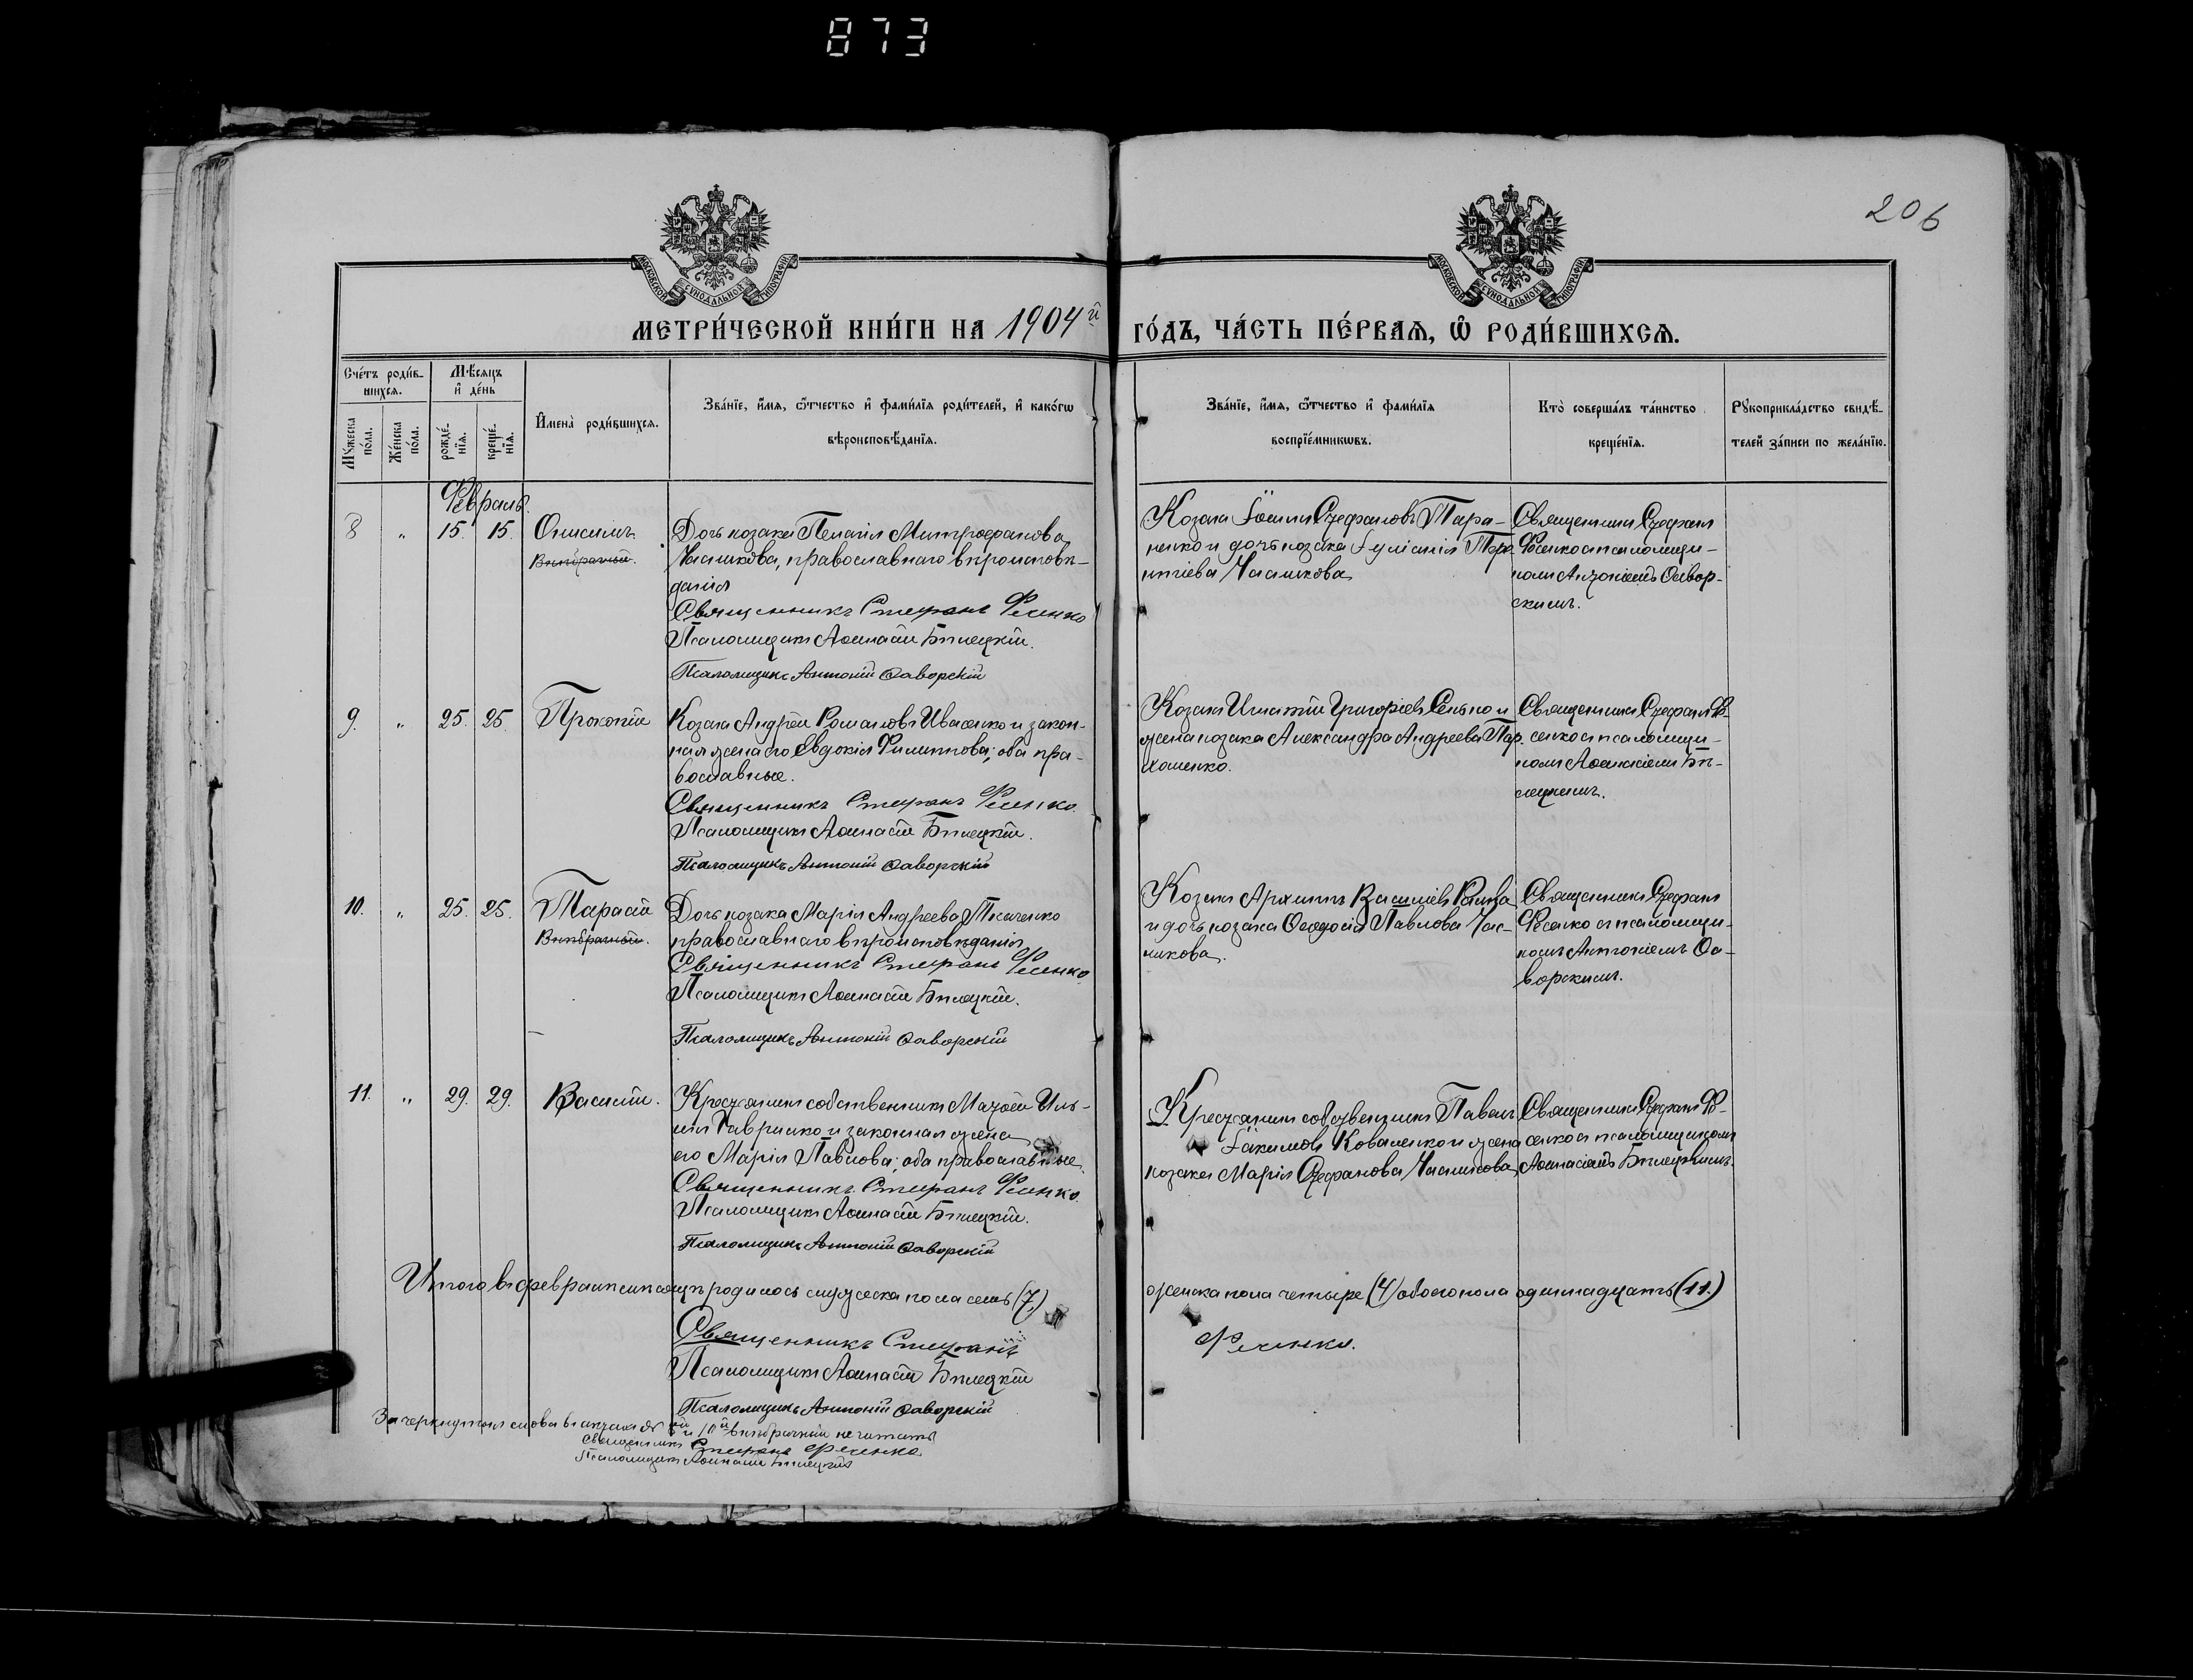 873
206
МОСКОВСКОЙ СѴНОДАЛЬНОЙ ТИПОГРАФІИ
МОСКОВСКОЙ СѴНОДАЛЬНОЙ ТИПОГРАФІИ
МЕТРИ́ЧЕСКОЙ КНИ́ГИ НА 1904й ГО́ДЪ, ЧА́СТЬ ПЕ́РВАѦ, Ѽ РОДИ́ВШИХСѦ.
Сче́тъ роди́в-
шихсѧ.
Мѣ́сѧцъ
и҆ де́нь
Мꙋ́жеска
по́ла.
Же́нска
по́ла.
рожде́-
нїѧ.
креще́-
нїѧ.
И҆мена̀ роди́вшихсѧ.
Зва́нїе, и҆́мѧ, ѻ҆́тчество и҆ фами́лїѧ роди́телей, и҆ како́гѡ
вѣроисповѣ́данїѧ.
Зва́нїе, и҆́мѧ, ѻ҆́тчество и҆ фами́лїѧ
воспрїе́мникѡвъ.
Кто̀ соверша́лъ та́инство
креще́нїѧ.
Рꙋкоприкла́дство свидѣ́-
телей за́писи по жела́нїю.
Февраль.
8 „ 15. 15. Онисимъ
Внѣбрачный.
Дочь козака Пелагія Митрофанова
Часникова, православнаго вѣроисповѣ-
данія
Священникъ Стефанъ Фесенко
Псаломщикъ Аѳанасій Бѣлецкій.
Псаломщикъ Антоній Саворскій
Козакъ Іоаннъ Стефановъ Тара-
ненко и дочь козака Іуліанія
Часникова
Священникъ Стефанъ
Фесенко съ псаломщи-
комъ Антоніемъ Савор-
скимъ.
9. „ 25. 25. Прокопій
Козакъ Андрей Романовъ Ивасенко и закон-
ная жена его Евдокія Филиппова; оба пра-
вославные.
Священникъ Стефанъ Фесенко.
Псаломщикъ Аѳанасій Бѣлецкій.
Псаломщикъ Антоній Саворскій
Козакъ Игнатій Григоріевъ и
жена козака Александра Андреева Пар-
хоменко.
Священникъ Стефанъ Фе-
сенко съ псаломщи-
комъ Аѳанасіемъ Бѣ-
лецкимъ.
10. „ 25. 25. Тарасій
Внѣбрачный.
Дочь козака Марія Андреева Ткаченко
православнаго вѣроисповѣданія
Священникъ Стефанъ Фесенко
Псаломщикъ Аѳанасій Бѣлецкій.
Псаломщикъ Антоній Саворскій
Козакъ Архиппъ Василіевъ
и дочь козака Ѳеодосія Павлова Час-
никова.
Священникъ Стефанъ
Фесенко съ псаломщи-
комъ Антоніемъ Са-
ворскимъ.
11. „ 29. 29. Василій.
Крестьянинъ собственникъ Матѳей Иль-
инъ Гавришко и законная жена
его Марія Павлова; оба православные.
Священникъ Стефанъ Фесенко.
Псаломщикъ Аѳанасій Бѣлецкій.
Псаломщикъ Антоній Саворскій
Крестьянинъ собственникъ Павелъ
Іакимовъ Коваленко и жена
козака Марія Стефанова Часникова
Священникъ Стефанъ Фе-
сенко съ псаломщикомъ
Аѳанасіемъ Бѣлецкимъ.
Итого въ февралѣ мѣсяцѣ родилось мужеска пола семь (7) женска пола четыре (4) обоего пола одинадцать (11.)
Священникъ Стефанъ Фесенко.
Псаломщикъ Аѳанасій Бѣлецкій
Псаломщикъ Антоній Саворскій
Зачеркнутыя слова въ актахъ 8й и 10й внѣбрачный не читать
Священникъ Стефанъ Фесенко
Псаломщикъ Аѳанасій Бѣлецкій